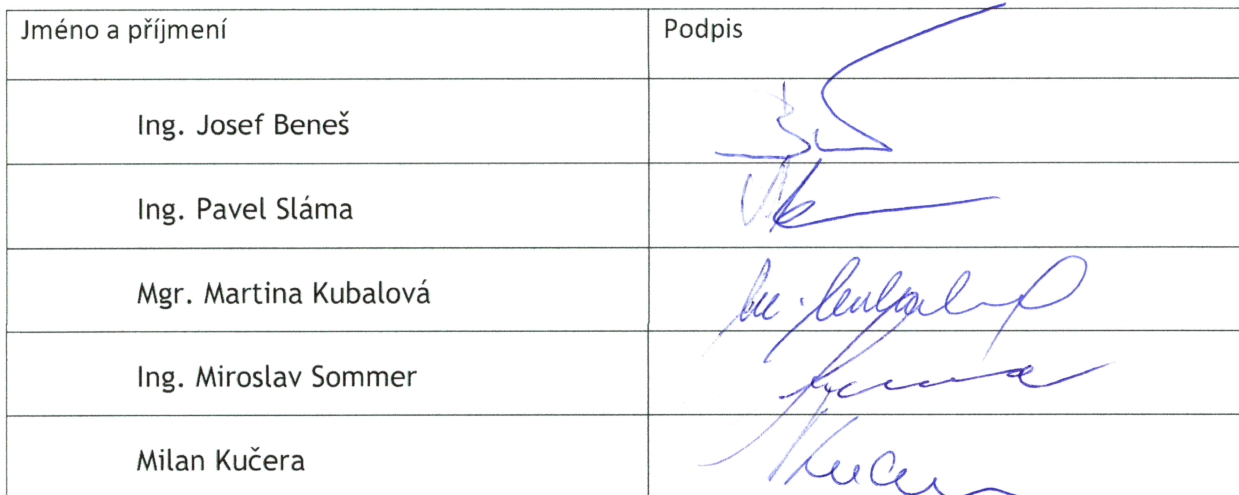 Jméno a příjmení Podpis
Ing. Josef Beneš
Ing. Pavel Sláma
Mgr. Martina Kubalová
Ing. Miroslav Sommer
Milan Kučera